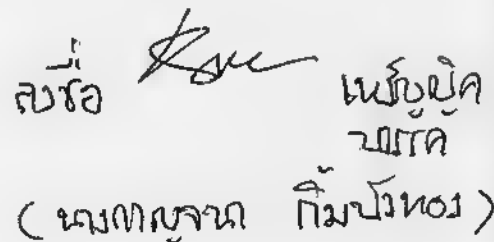 ลงชื่อ เหรัญญิก
พรรค
(นางกาญจนา กิ้มบัวทอง)